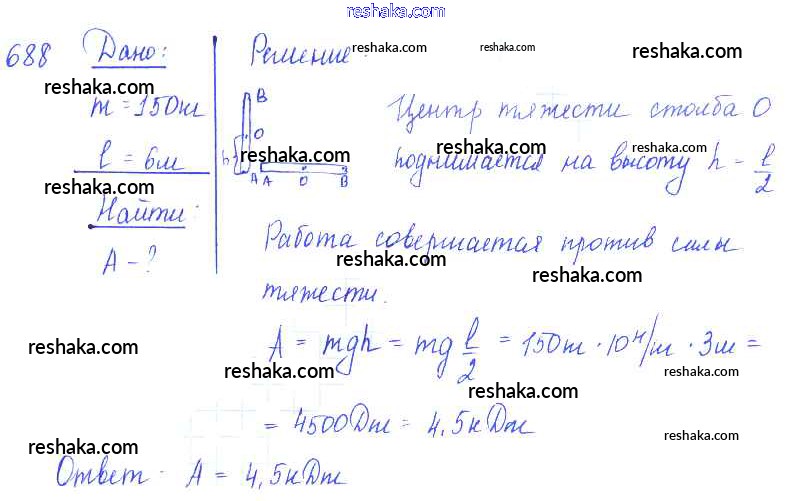 reshaka.com
688 Дано: Решение:
reshaka.com reshaka.com reshaka.com
reshaka.com
m = 150кг
B
Центр тяжести столба O
O
reshaka.com reshaka.com
l = 6м
h
поднимается на высоту h - l/2
reshaka.com
A A O B
Найти:
Работа совершается против силы
reshaka.com
A - ?
reshaka.com reshaka.com
тяжести.
reshaka.com
A = mgh = mg l/2 = 150кг · 10Н/кг · 3м =
reshaka.com reshaka.com
reshaka.com
= 4500Дж = 4,5кДж
reshaka.com reshaka.com
Ответ · A = 4,5кДж
reshaka.com